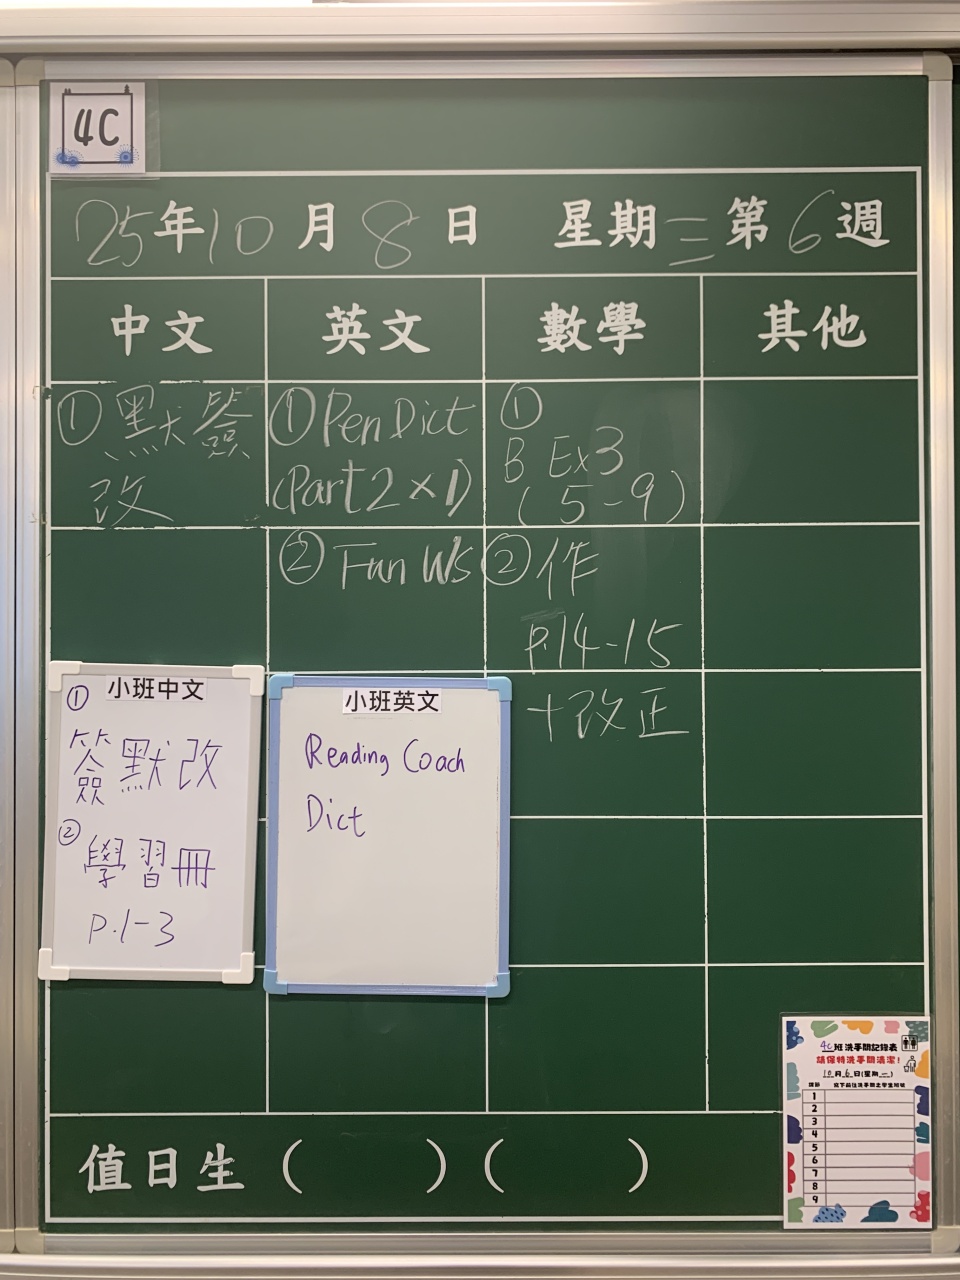 4C
25年10月8日 星期三 第6週
中文 英文 數學 其他
①默簽
改
①Pen Dict
(Part 2 × 1)
②Fun WS
①
B Ex3
(5-9)
②作
P.14-15
+改正
小班中文
①
簽默改
②
學習冊
P.1-3
小班英文
Reading Coach
Dict
值日生 ( ) ( )
4C班洗手間記錄表
請保持洗手間清潔!
10月6日(星期一)
1
2
3
4
5
6
7
8
9